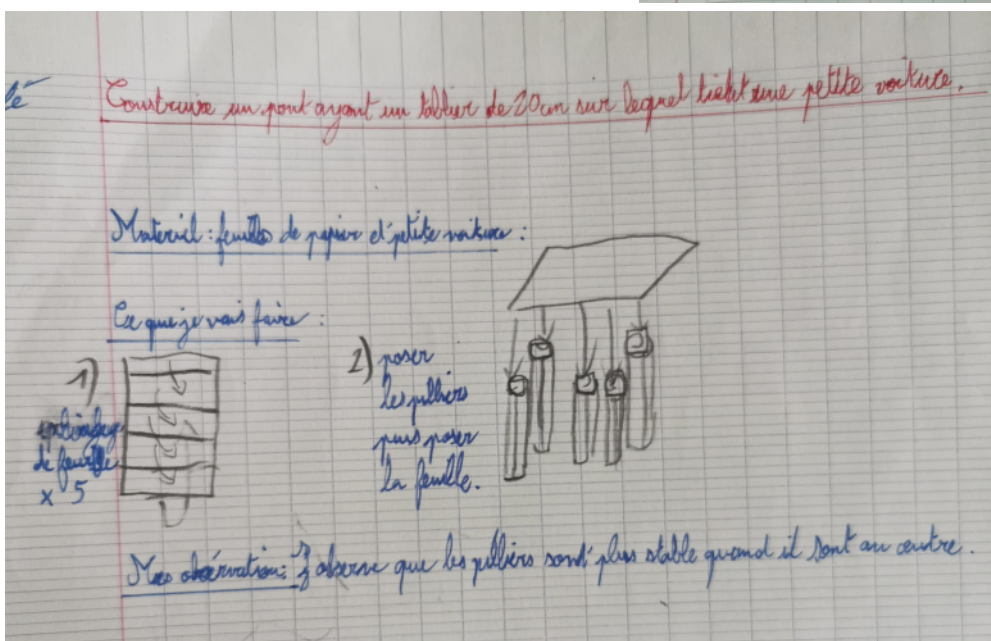 lé
Construire un pont ayant un tablier de 20 cm sur lequel tient une petite voiture.
Materiel : feuilles de papier et petite voiture :
Ce que je vais faire :
1)
de feuille
x 5
2) poser
les pilliers
puis poser
la feuille.
Mes observation : J'observe que les pilliers sont plus stable quand il sont au centre.